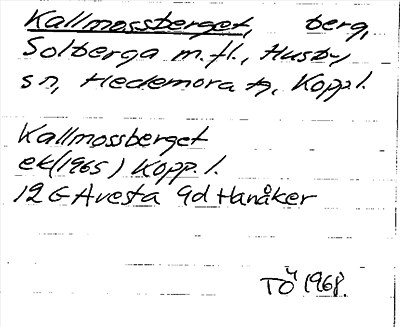 Kallmossberget, berg,
Solberga m.fl., Husby
sn, Hedemora tg, Kopp.l.
Kallmossberget
ek(1965) Kopp.l.
12 G Avesta 9d Hanåker
TÖ 1968.